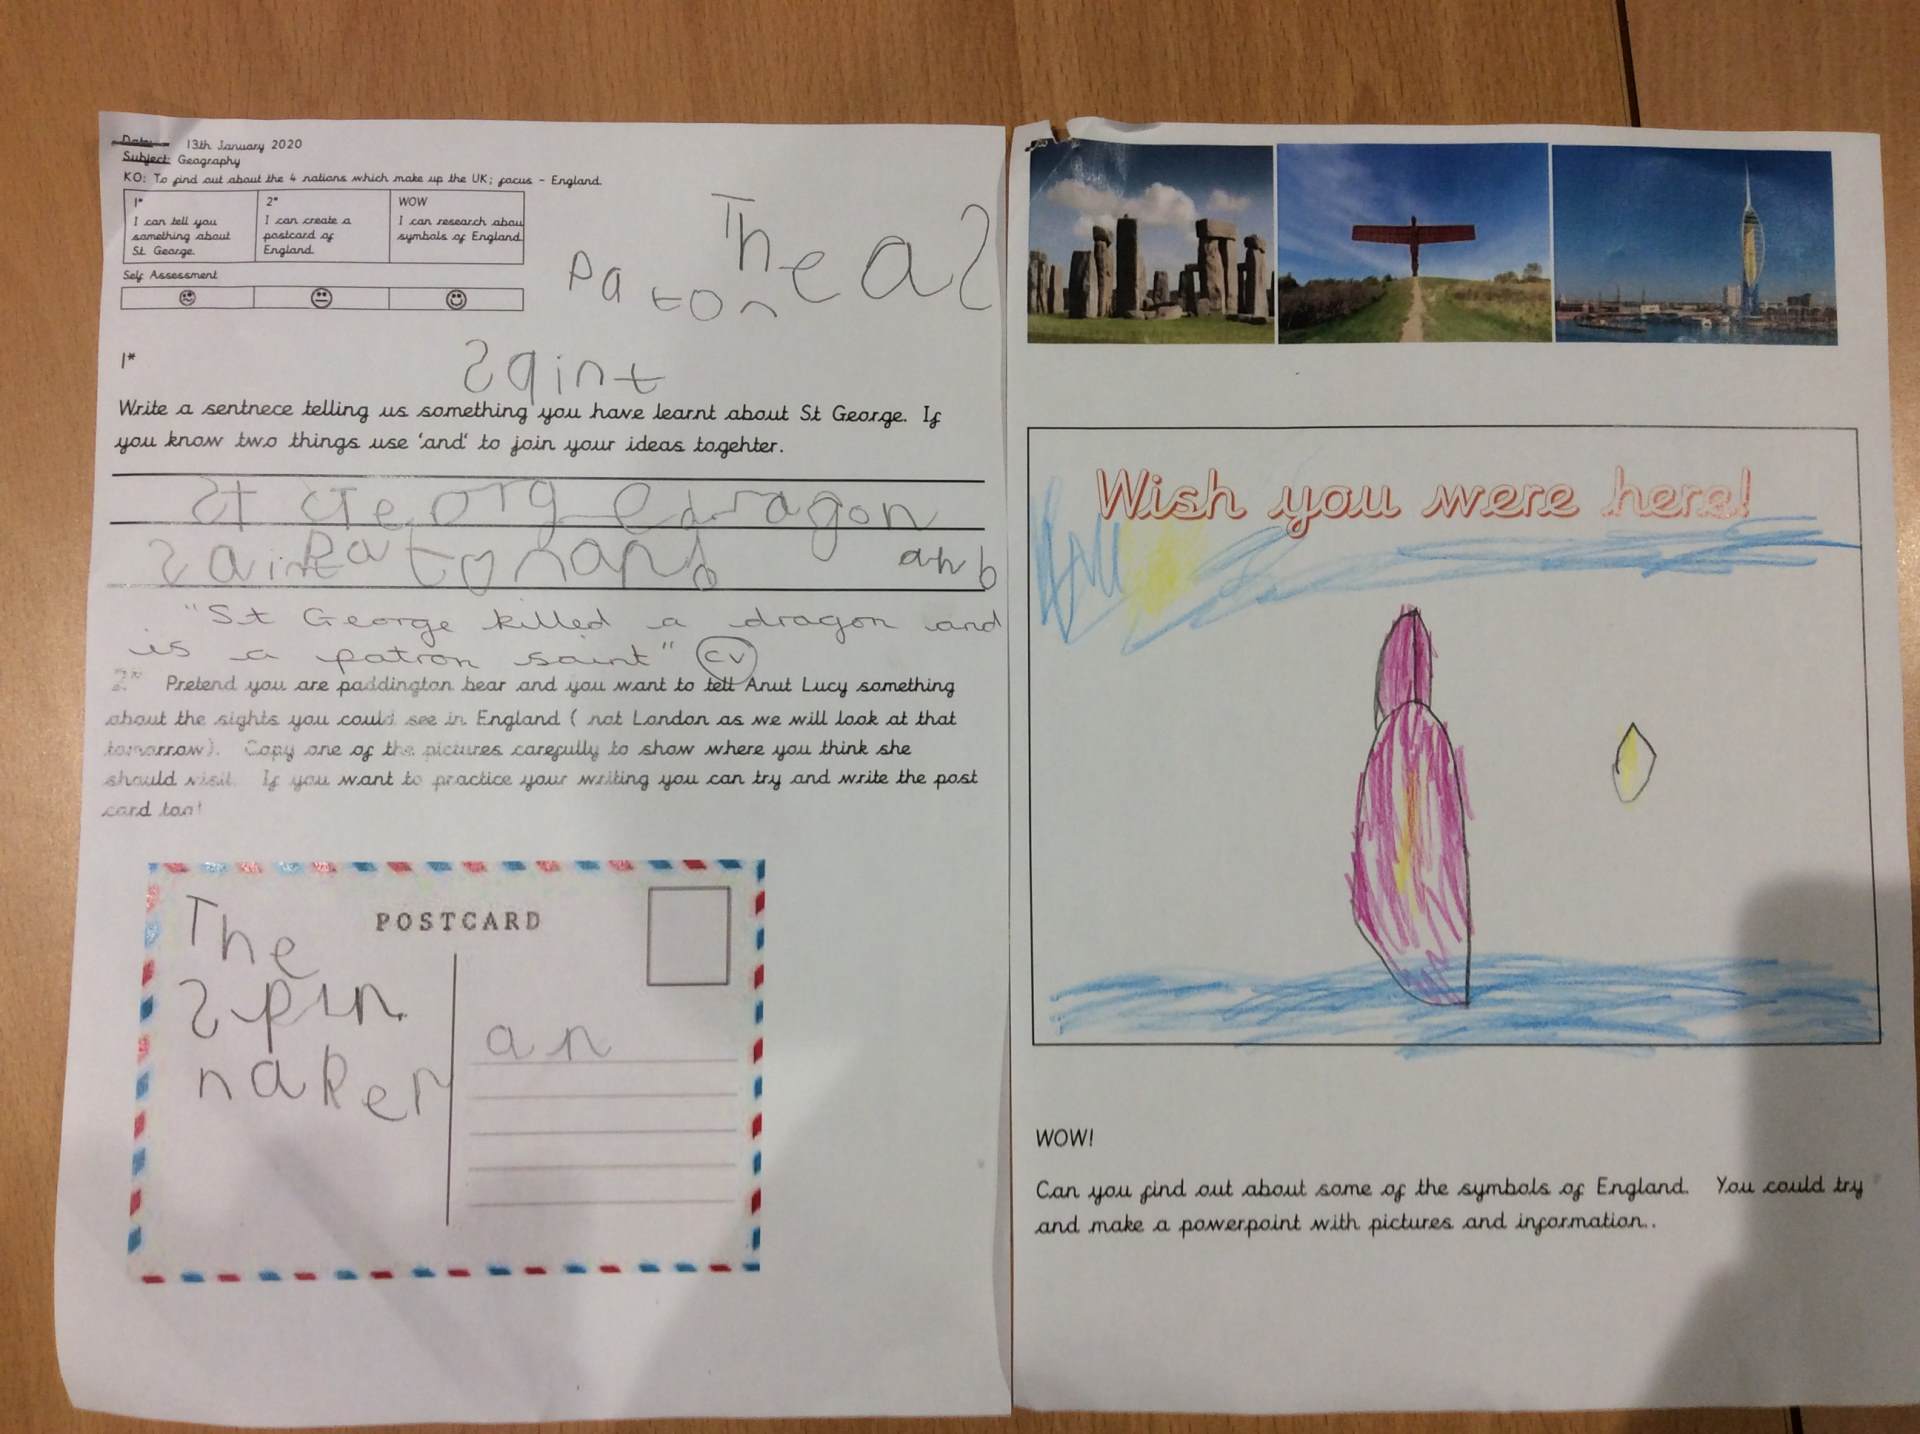 Date: 13th January 2020
Subject: Geography
KO: To find out about the 4 nations which make up the UK; focus - England.
1* 2* WOW
I can tell you something about St. George. I can create a postcard of England. I can research abou symbols of England.
Self Assessment
The
Pa ton
1*
Saint
Write a sentnece telling us something you have learnt about St George. If
you know two things use 'and' to join your ideas togehter.
St George dragon
Saint Paton and anb
"St George killed a dragon and
is a patron saint" CV
2* Pretend you are paddington bear and you want to tell Anut Lucy something
about the sights you could see in England ( not London as we will look at that
tomorrow). Copy one of the pictures carefully to show where you think she
should visit. If you want to practice your writing you can try and write the post
card too!
POSTCARD
The
Spin
naker
an
Wish you were here!
WOW!
Can you find out about some of the symbols of England. You could try
and make a powerpoint with pictures and information..